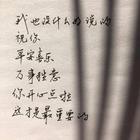 我也没什么好说的
祝你
平安喜乐
万事胜意
你开心点啦
这才是最重要的